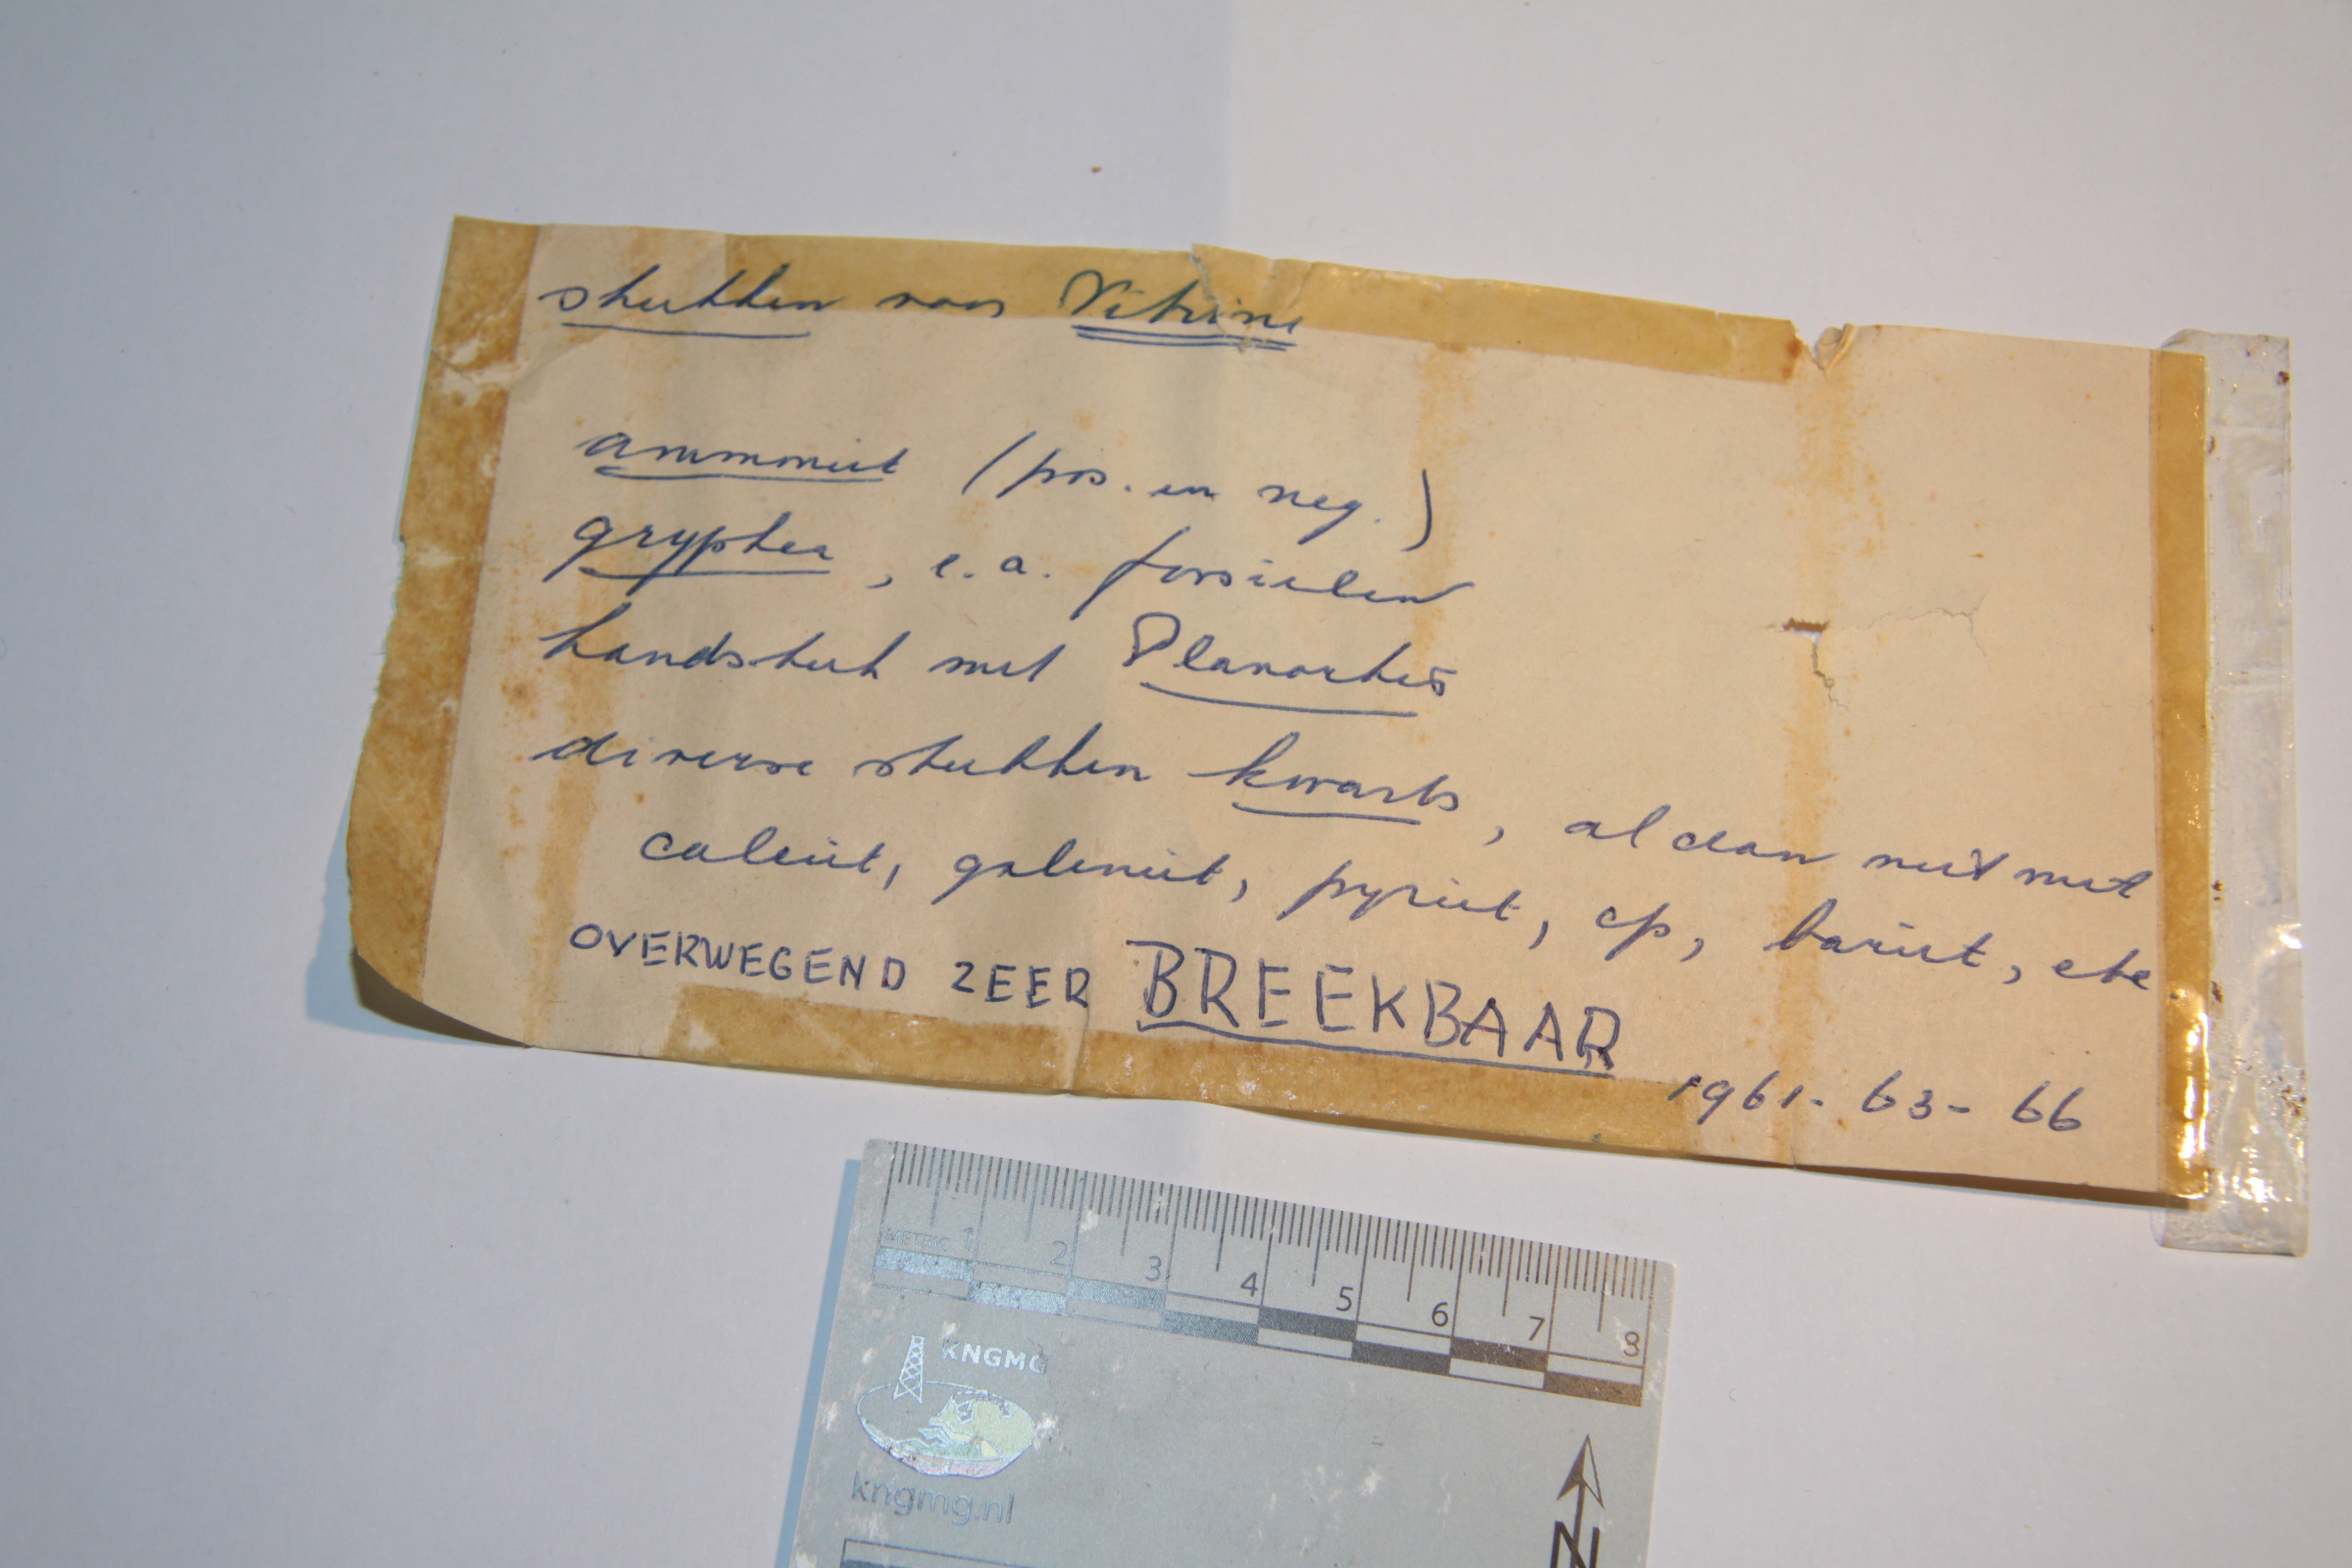 stukken voor Vitrine
ammoniet (pos. en neg.)
gryphea, e.a. fossielen
handstuk met Planorbis
diverse stukken kwarts, al dan niet met
calciet, galeniet, pyriet, cp, bariet, etc
OVERWEGEND ZEER BREEKBAAR
1961- 63- 66
METRIC 1 2 3 4 5 6 7 8
KNGMG
kngmg.nl
N